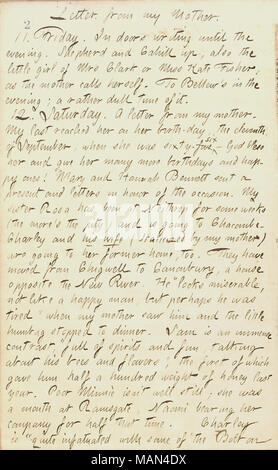 Letter from my Mother.
2
11. Friday. In doors writing until the
evening. Shepherd and Cahill up, also the
little girl of Mrs Clark or Miss Kate Fisher,
as the mother calls herself. To Bellew's in the
evening; a rather dull time of it.
12. Saturday. A letter from my mother.
My last reached her on her birth-day, the eleventh
of September, when she was sixty-five. God bless
her and give her many more birthdays and hap-
py ones! Mary and Hannah Bennett sent a
present and letters in honor of the occasion. My
sister Rosa has been at Neithrop for some weeks
(the more's the pity) and is going to Chacombe.
Charley and his wife (         by my mother)
are going to her former home, too. They have
moved from Chigwell to Canonbury, a house
opposite the New River. "He looks miserable,
not like a happy man, but perhaps he was
tired" when my mother saw him and the little
         stopped to dinner. Sam is an immense
contrast, full of spirits and fun, talking
about his bees and flowers; the first of which
gave him half a hundred weight of honey last
year. Poor Minnie isn't well still; she was
a month at Ramsgate. Naomi bearing her
company for half that time. Charley
is "quite infatuated with some of the Bolton
alamy
Image ID: MAN4DX
www.alamy.com